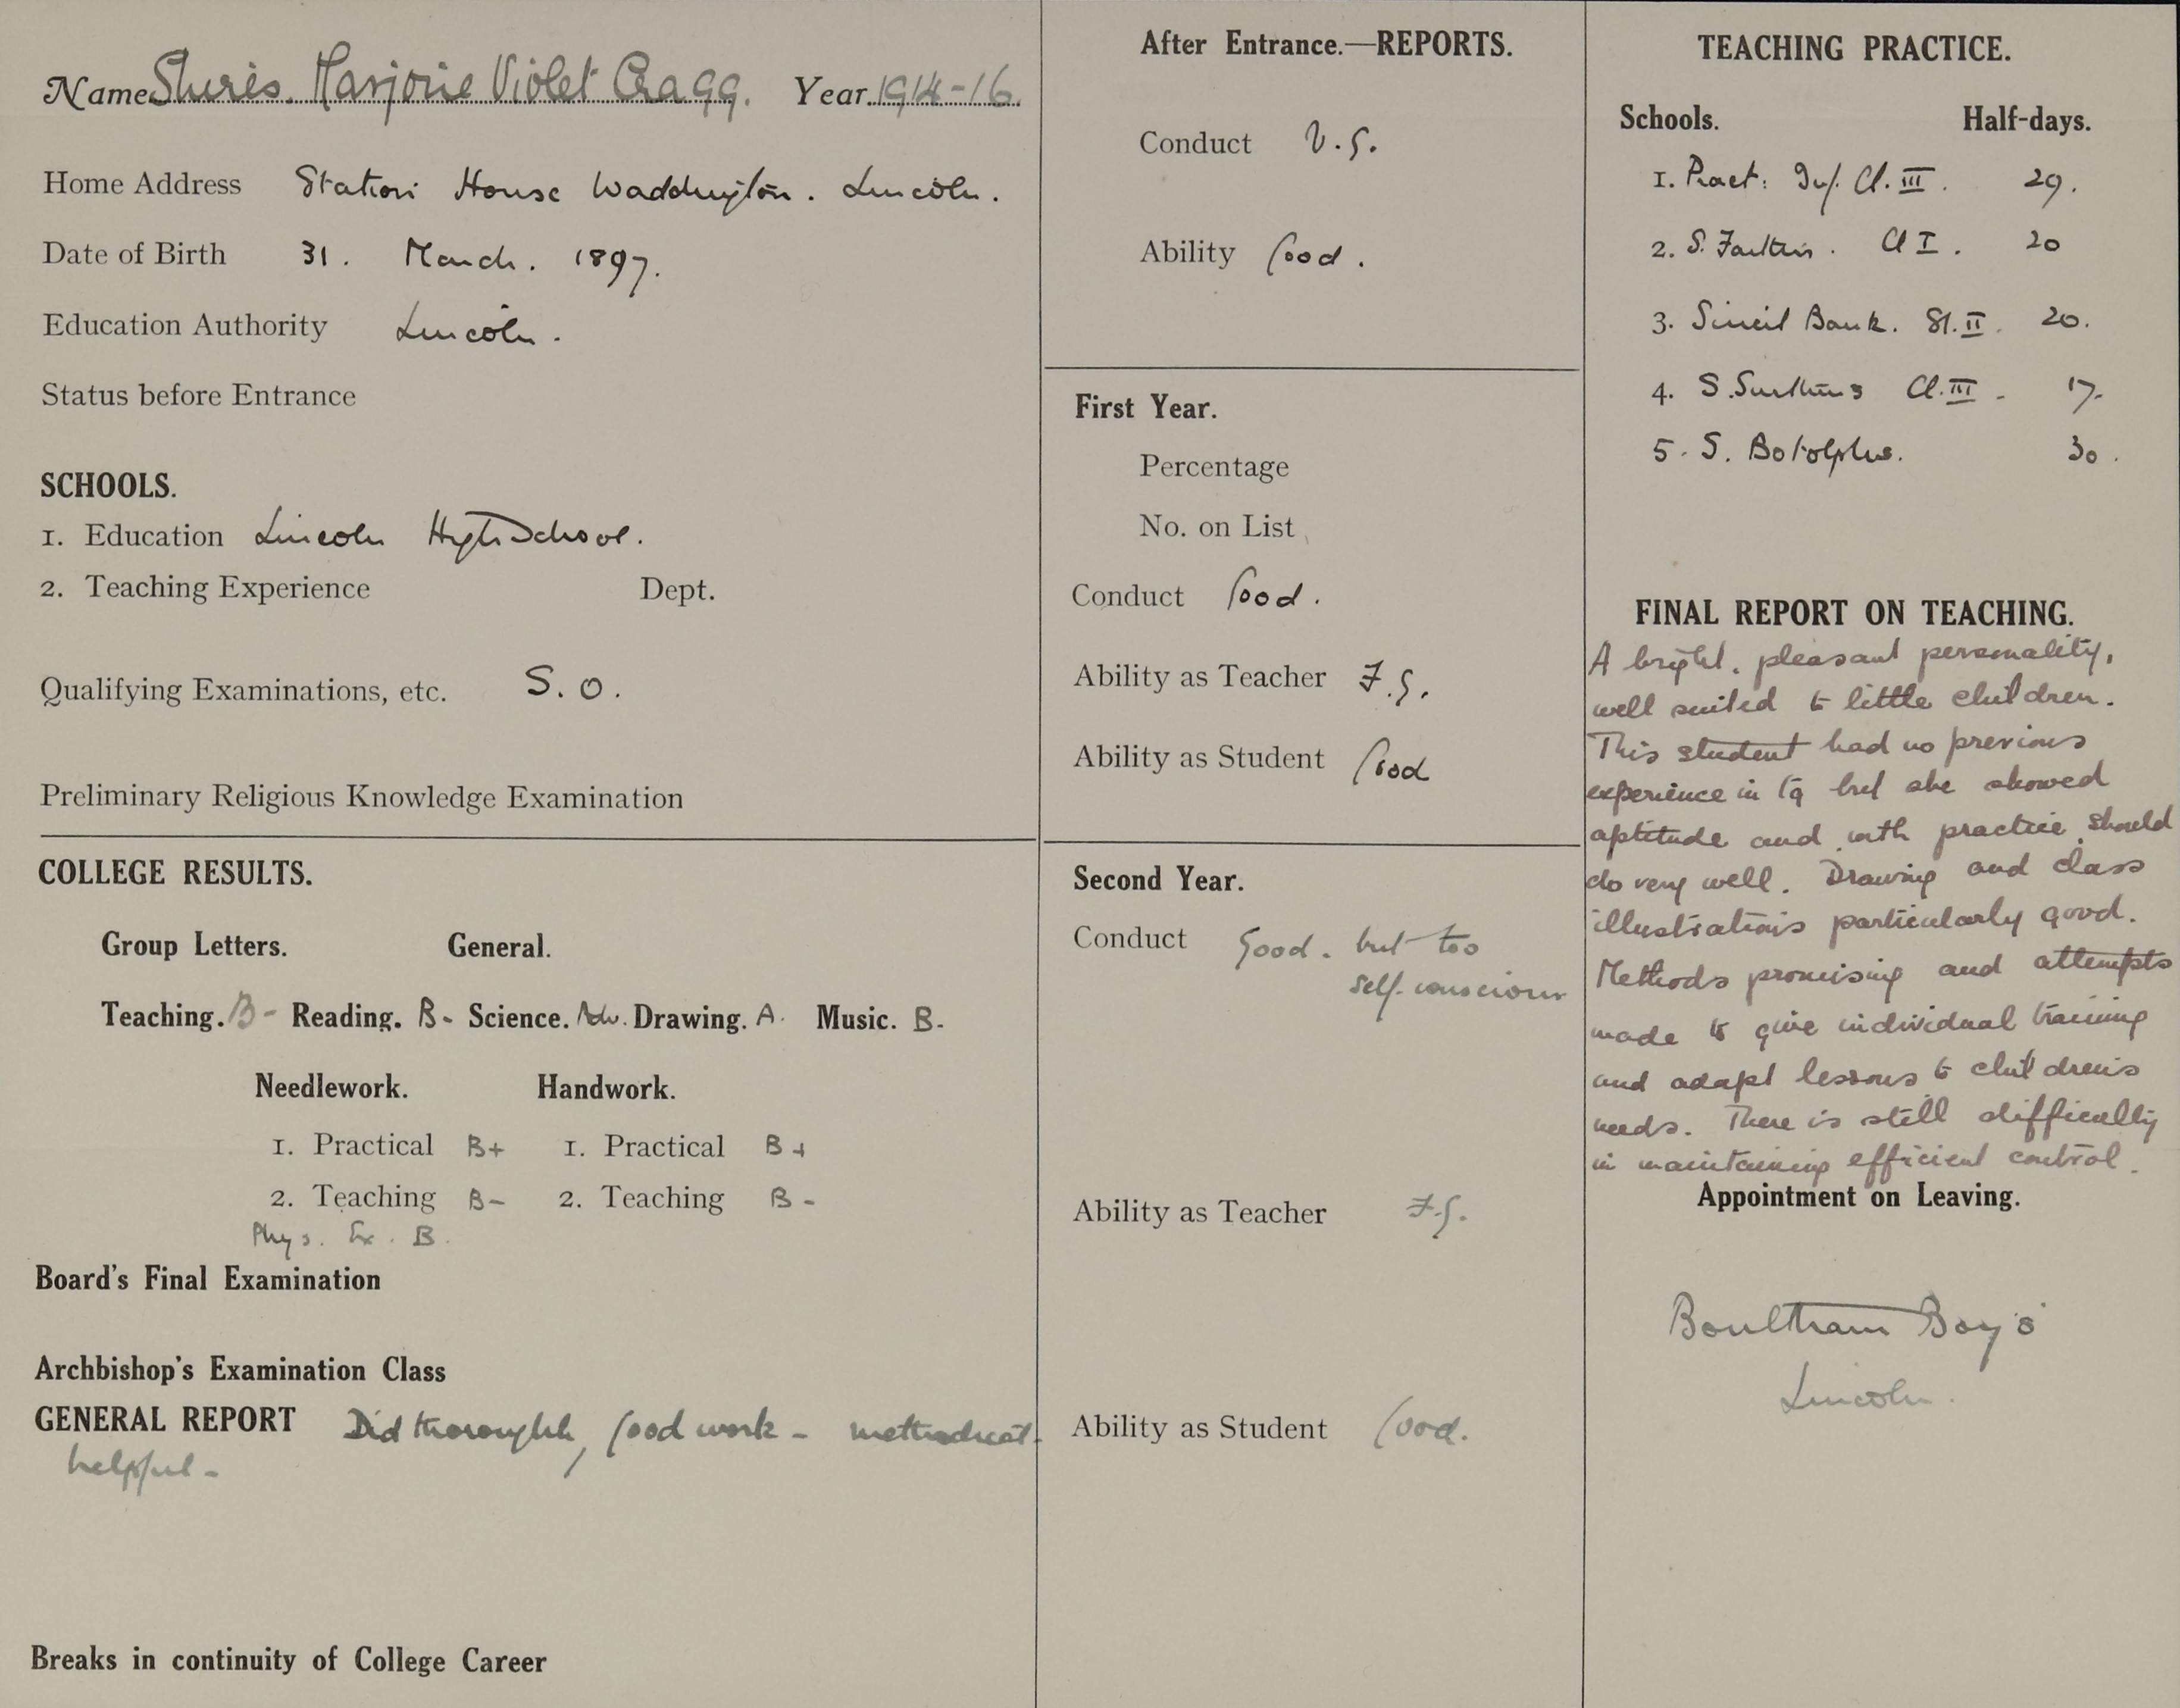 Name Shires. Marjorie Violet Cragg. Year. 1914-16.
Home Address Station House Waddington. Lincoln.
Date of Birth 31. March. 1897.
Education Authority Lincoln.
Status before Entrance
SCHOOLS.
1. Education Lincoln High School.
2. Teaching Experience Dept.
Qualifying Examinations, etc. S.O.
Preliminary Religious Knowledge Examination
COLLEGE RESULTS.
Group Letters. General.
Teaching. B- Reading. B- Science. Adv. Drawing. A. Music. B.
Needlework. Handwork.
1. Practical B+ 1. Practical B+
2. Teaching B- 2. Teaching B-
Phys. Ex. B.
Board's Final Examination
Archbishop's Examination Class
GENERAL REPORT Did thoroughly good work - methodical.
helpful -
Breaks in continuity of College Career
After Entrance.—REPORTS.
Conduct V.G.
Ability Good.
First Year.
Percentage
No. on List
Conduct Good.
Ability as Teacher F.G.
Ability as Student Good
Second Year.
Conduct Good. but too
self-conscious
Ability as Teacher F.G.
Ability as Student Good.
TEACHING PRACTICE.
Schools. Half-days.
1. Pract: Inf. Cl. III. 29.
2. S. Cl I. 20
3. Sincil Bank. St. II. 20.
4. S. Swithins Cl. III - 17.
5. S. Botolphs. 30.
FINAL REPORT ON TEACHING.
A bright, pleasant personality,
well suited to little children.
This student had no previous
experience in tg but she showed
aptitude and with practice should
do very well. Drawing and class
illustrations particularly good.
Methods promising and attempts
made to give individual training
and adapt lessons to children's
needs. There is still difficulty
in maintaining efficient control.
Appointment on Leaving.
Boultham Boys'
Lincoln.